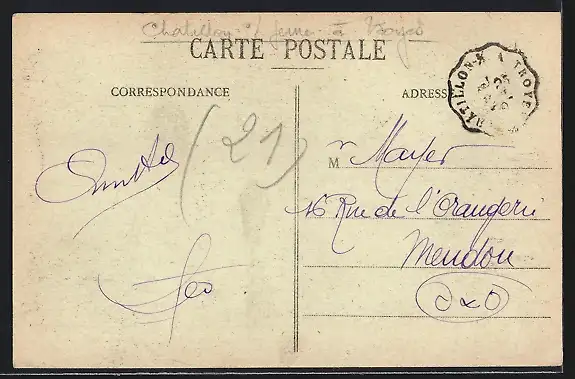 Chatillon s/ Seine à Troyes
CARTE POSTALE
CHATILLON-S A TROYES
CORRESPONDANCE
ADRESSE
(21)
M r Mayer
16 Rue de l'Orangerie
Meudon
Amitié
Léo
S & O